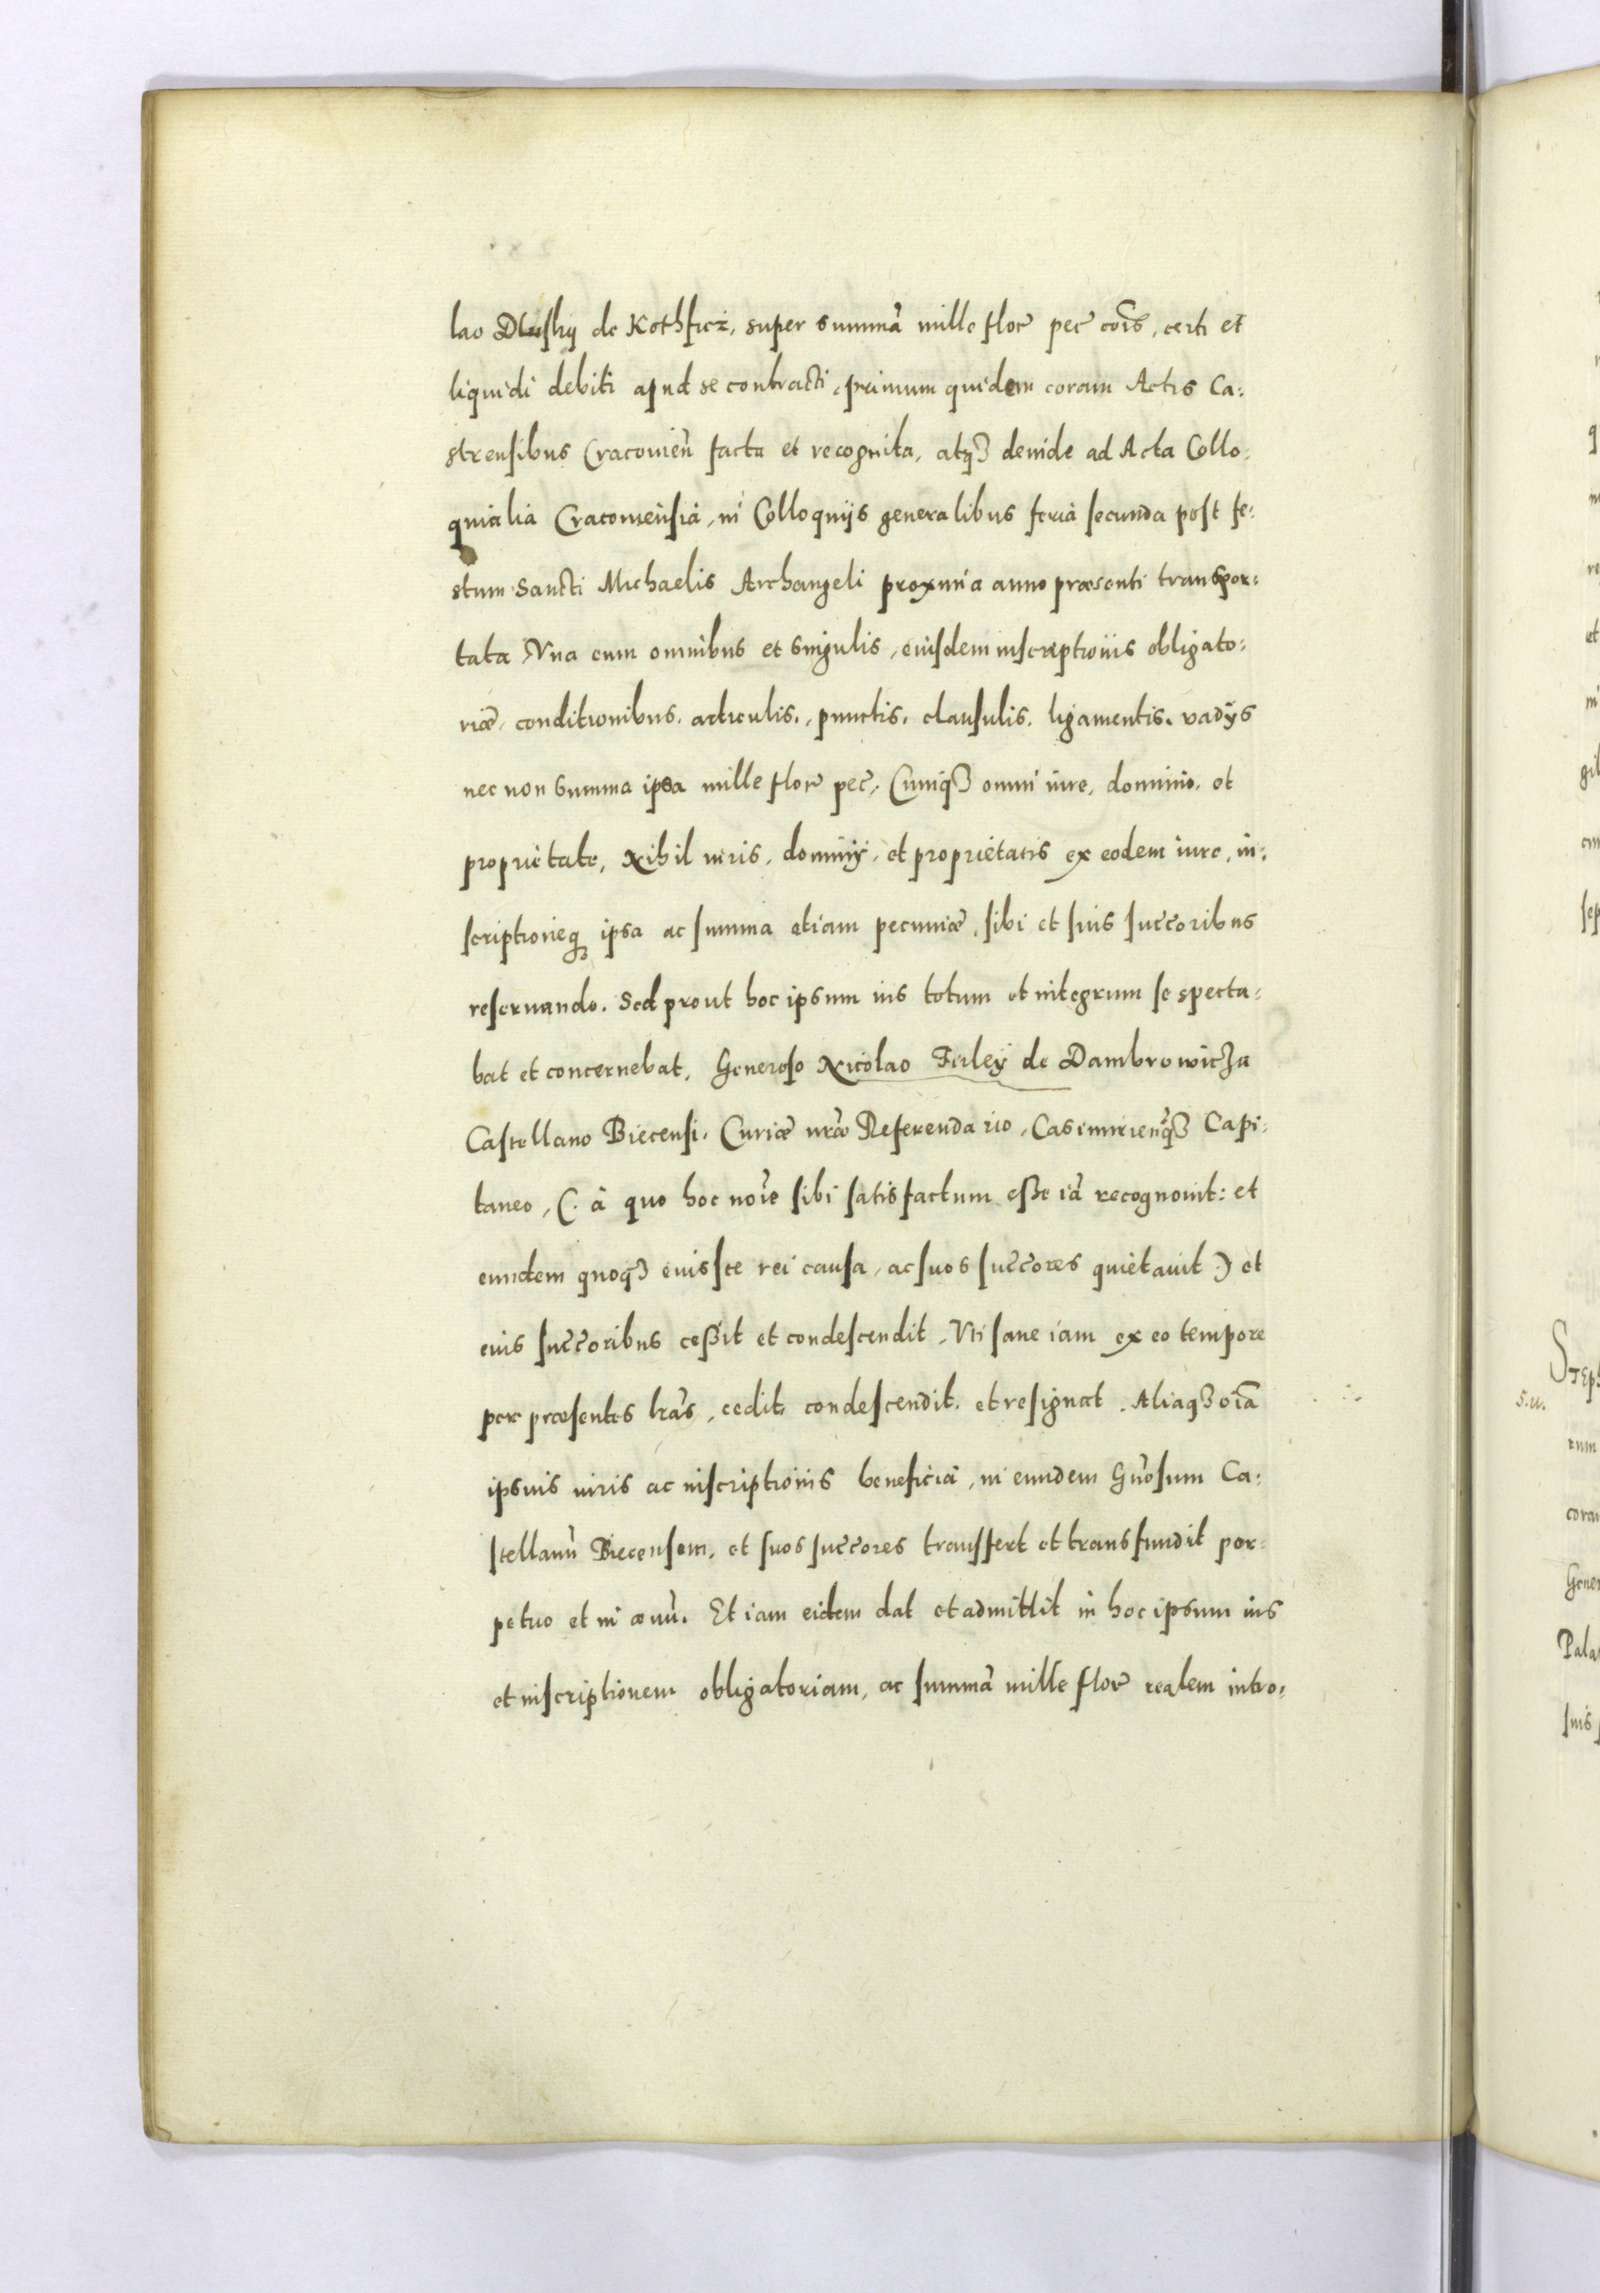 lao Dluskÿ de Kothficz, super summã mille flor̃ pec̃ coĩs, certi et
liquidi debiti apud se contracti, primum quidem coram Actis Ca:
strensibus Cracouieñ facta et recognita, atqȝ deinde ad Acta Collo:
quialia Cracouiensia, in Colloquijs generalibus feria secunda post fe:
stum Sancti Michaelis Archangeli proxima anno præsenti transpor:
tata Vna cum omnibus et singulis, eiusdem inscriptionis obligato:
riæ, conditionibus, articulis, punctis, clausulis, ligamentis, vadÿs
nec non summa ipsa mille flor̃ pec̃, Cumqȝ omni iure, dominio, et
proprietate, Nihil iuris, dominij, et proprietatis ex eodem iure, in:
scriptioneqȝ ipsa ac summa etiam pecuniæ, sibi et suis succ̃oribus
reseruando. Sed prout hoc ipsum ius totum et integrum se specta:
bat et concernebat, Generoso Nicolao Firleÿ de Dambrowicza
Castellano Biecensi, Curiæ nr̃æ Referendario, Casimirieñqȝ Capi:
taneo, (: à quo hoc noĩe sibi satisfactum eße iã recognouit: et
eundem quoqȝ eiusce rei causa, ac suos succ̃ores quietauit :) et
eius succ̃oribus ceßit et condescendit, Vti sane iam ex eo tempore
per præsentes lr̃as, cedit, condescendit, et resignat. Aliaqȝ oĩa
ipsius iuris ac inscriptionis beneficia, in eundem Gñosum Ca:
stellanũ Biecensem, et suos succ̃ores transfert et transfundit per:
petuo et in æuũ. Et iam eidem dat et admittit in hoc ipsum ius
et inscriptionem obligatoriam, ac summã mille flor̃ realem intro: